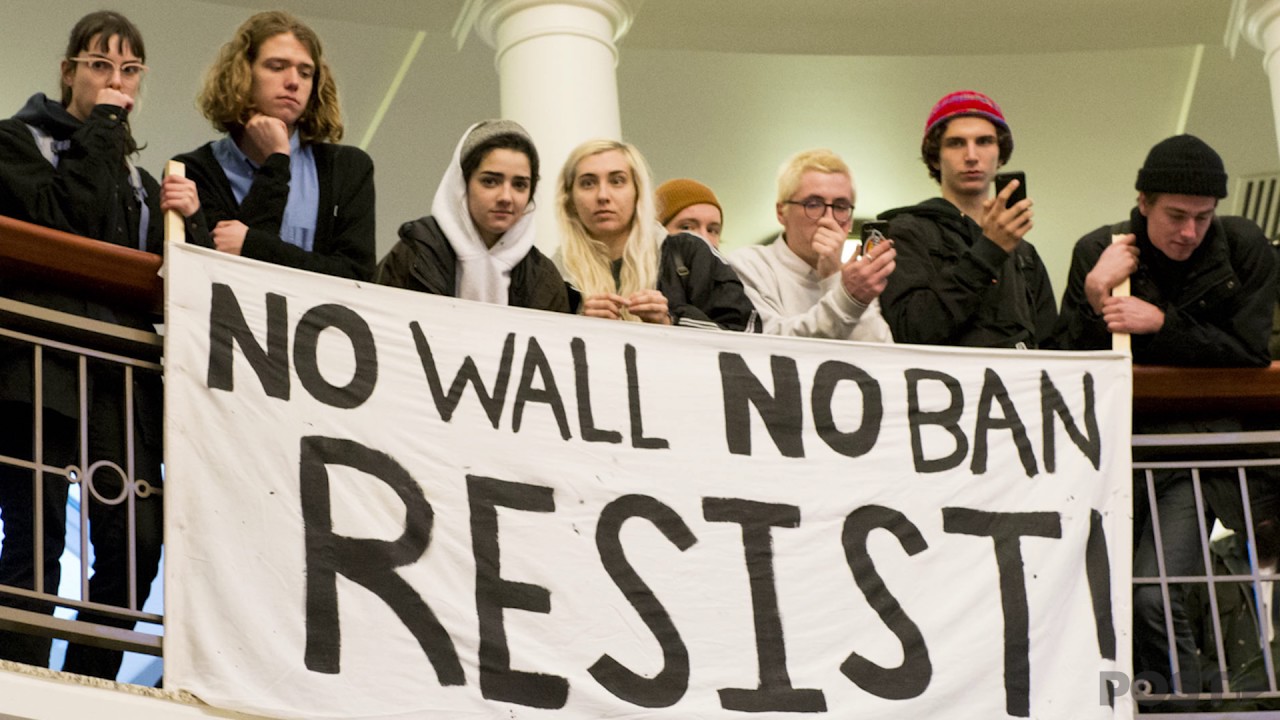 NO WALL NO BAN
RESIST!